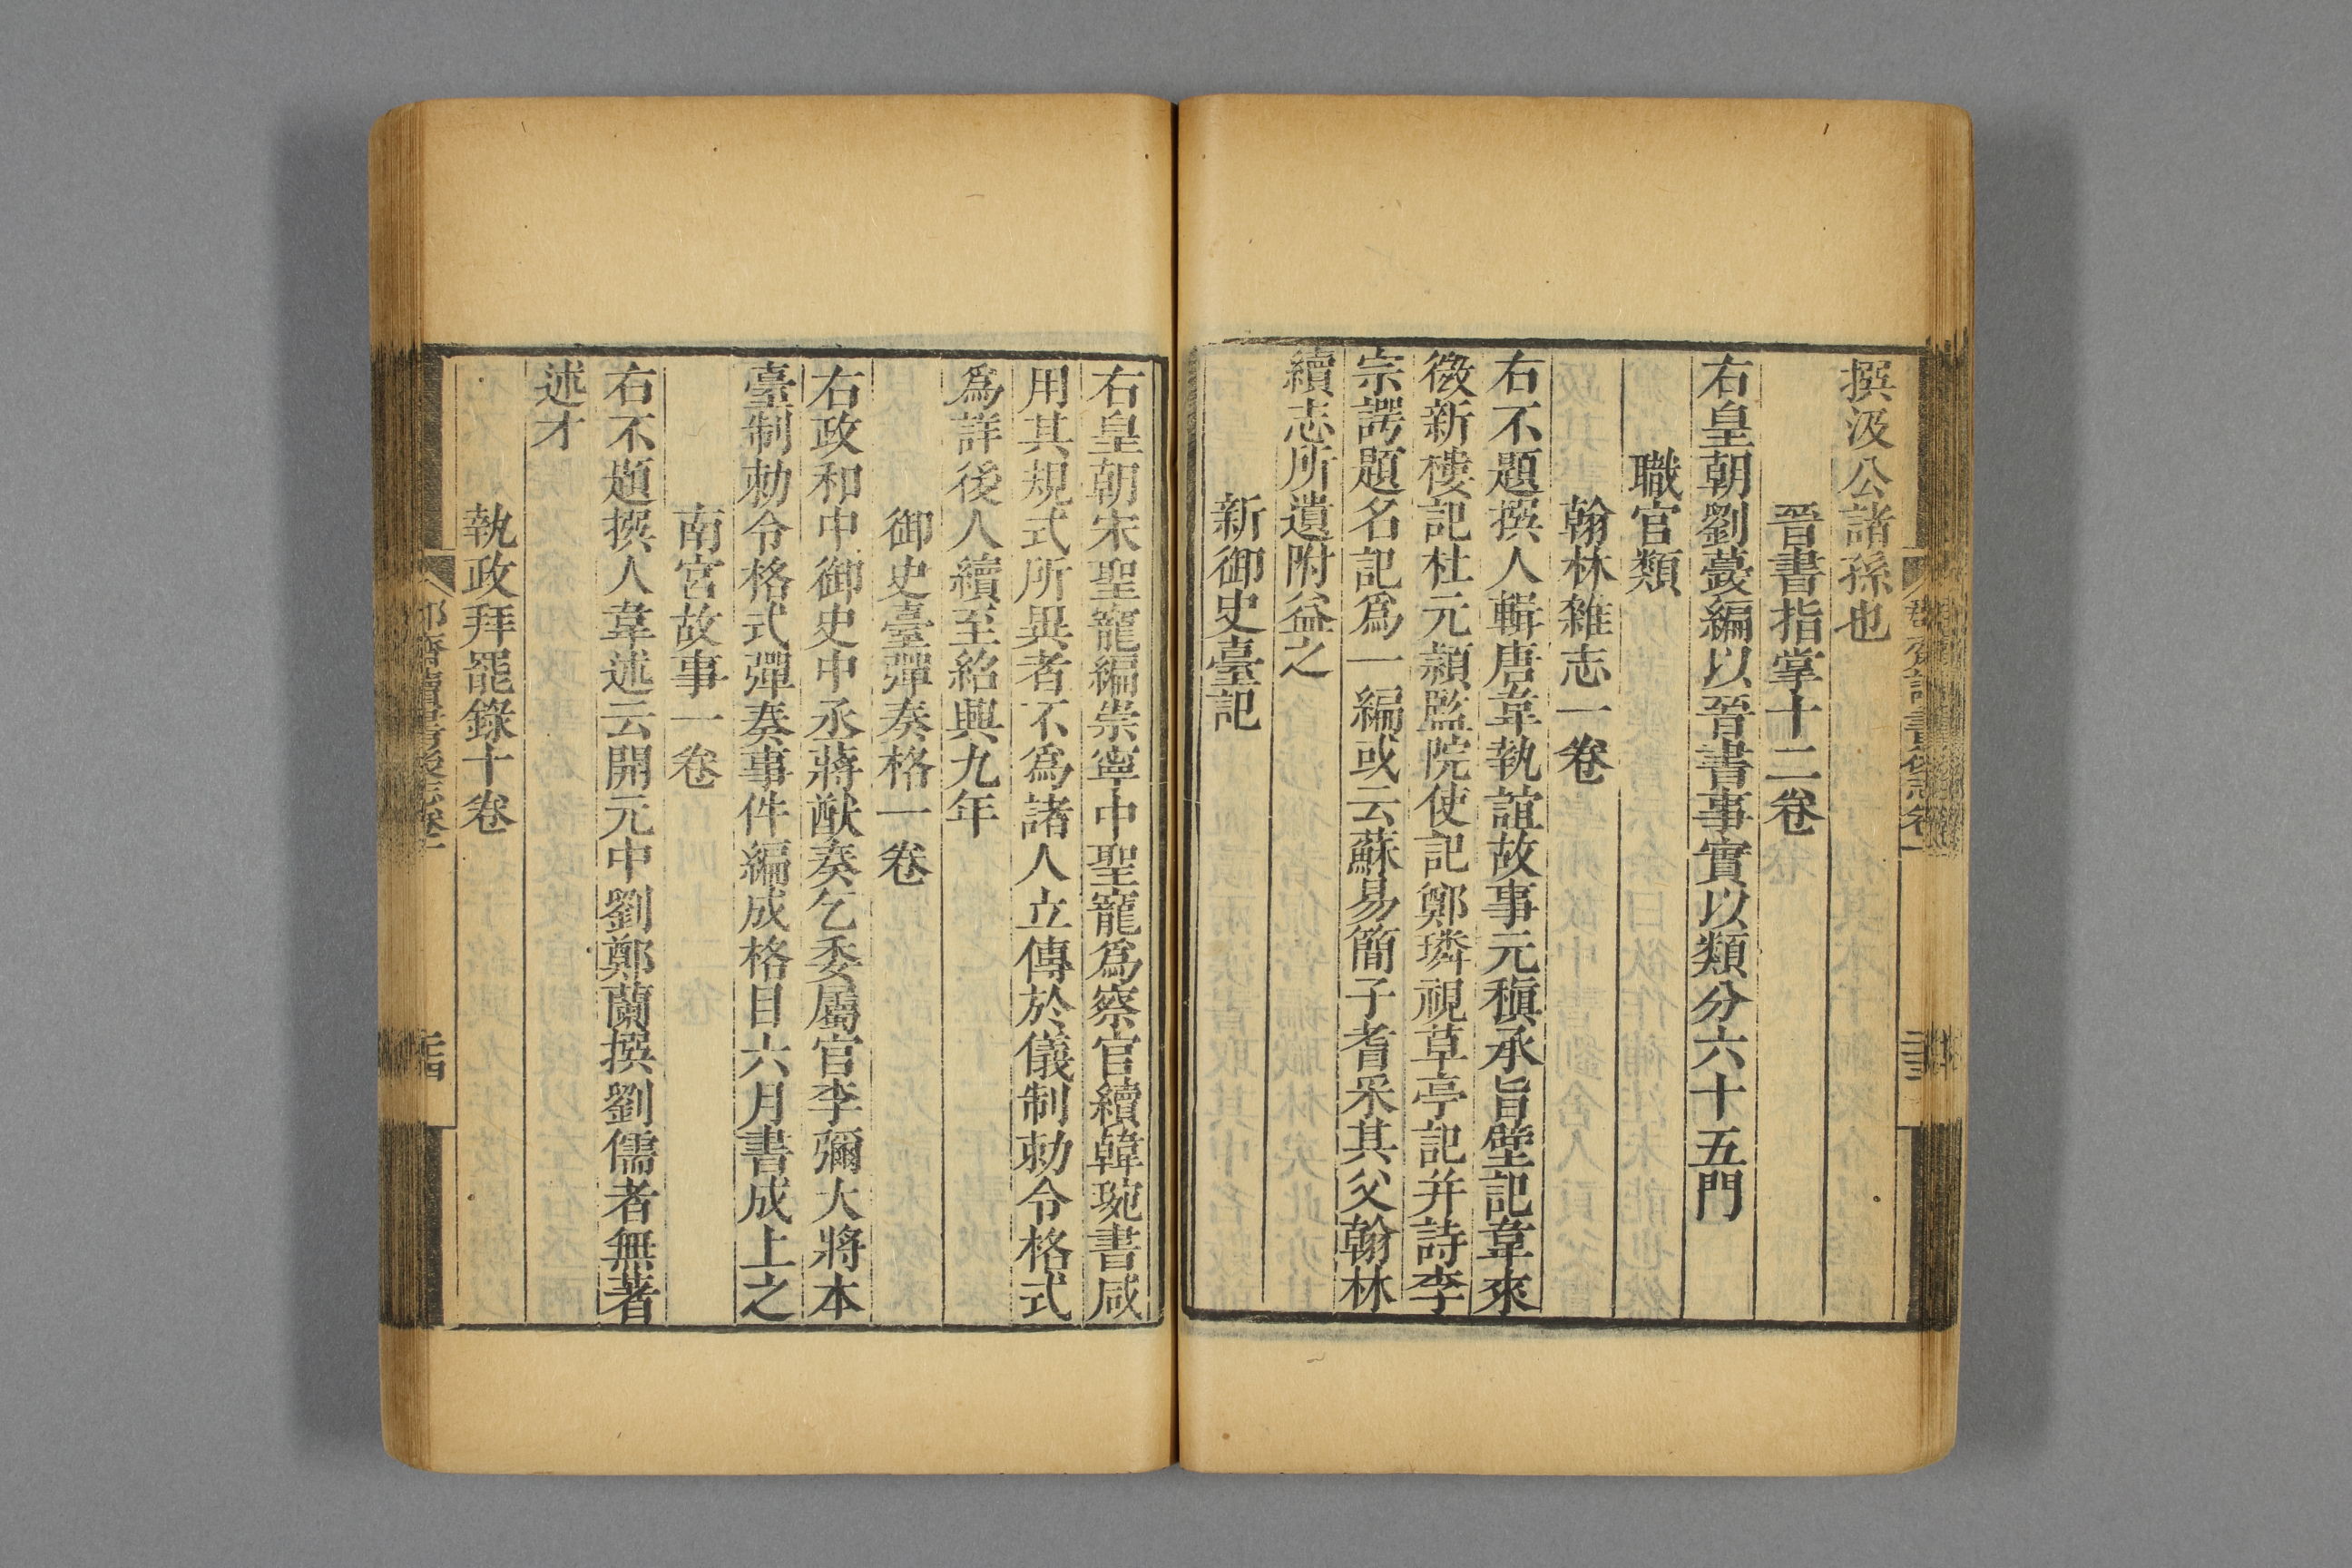 撰汲公諸孫也
晉書指掌十二卷
右皇朝劉蘷編以晉書事實以類分六十五門
職官類
翰林雜志一卷
右不題撰人輯唐韋執誼故事元稹承旨壁記韋來
微新樓記杜元頴監院使記鄭璘視草亭記并詩李
宗諤題名記爲一編或云蘇易簡子耆采其父翰林
續志所遺附益之
新御史臺記
右皇朝宋聖寵編崇寧中聖寵爲察官續韓琬書咸
用其規式所異者不爲諸人立傳於儀制勑令格式
爲詳後人續至紹興九年
御史臺彈奏格一卷
右政和中御史中丞蔣猷奏乞委屬官李彌大將本
臺制勑令格式彈奏事件編成格目六月書成上之
南宮故事一卷
右不題撰人韋述云開元中劉鄭蘭撰劉儒者無著
述才
執政拜罷錄十卷